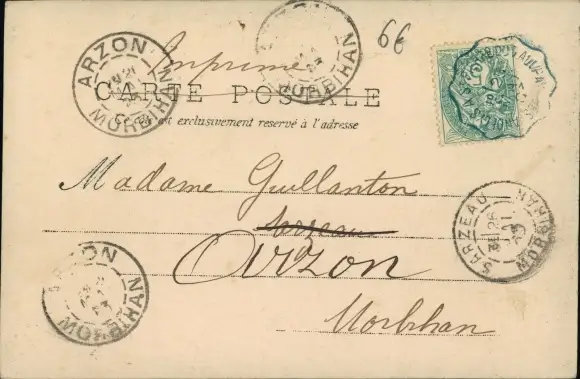 66
Imprimé
CARTE POSTALE
est exclusivement reservé à l'adresse
Madame Guillanton
Sarzeau
Arzon
Morbihan
ARZON
MORBIHAN
MORBIHAN
SARZEAU
MORBIHAN
ARZON
MORBIHAN